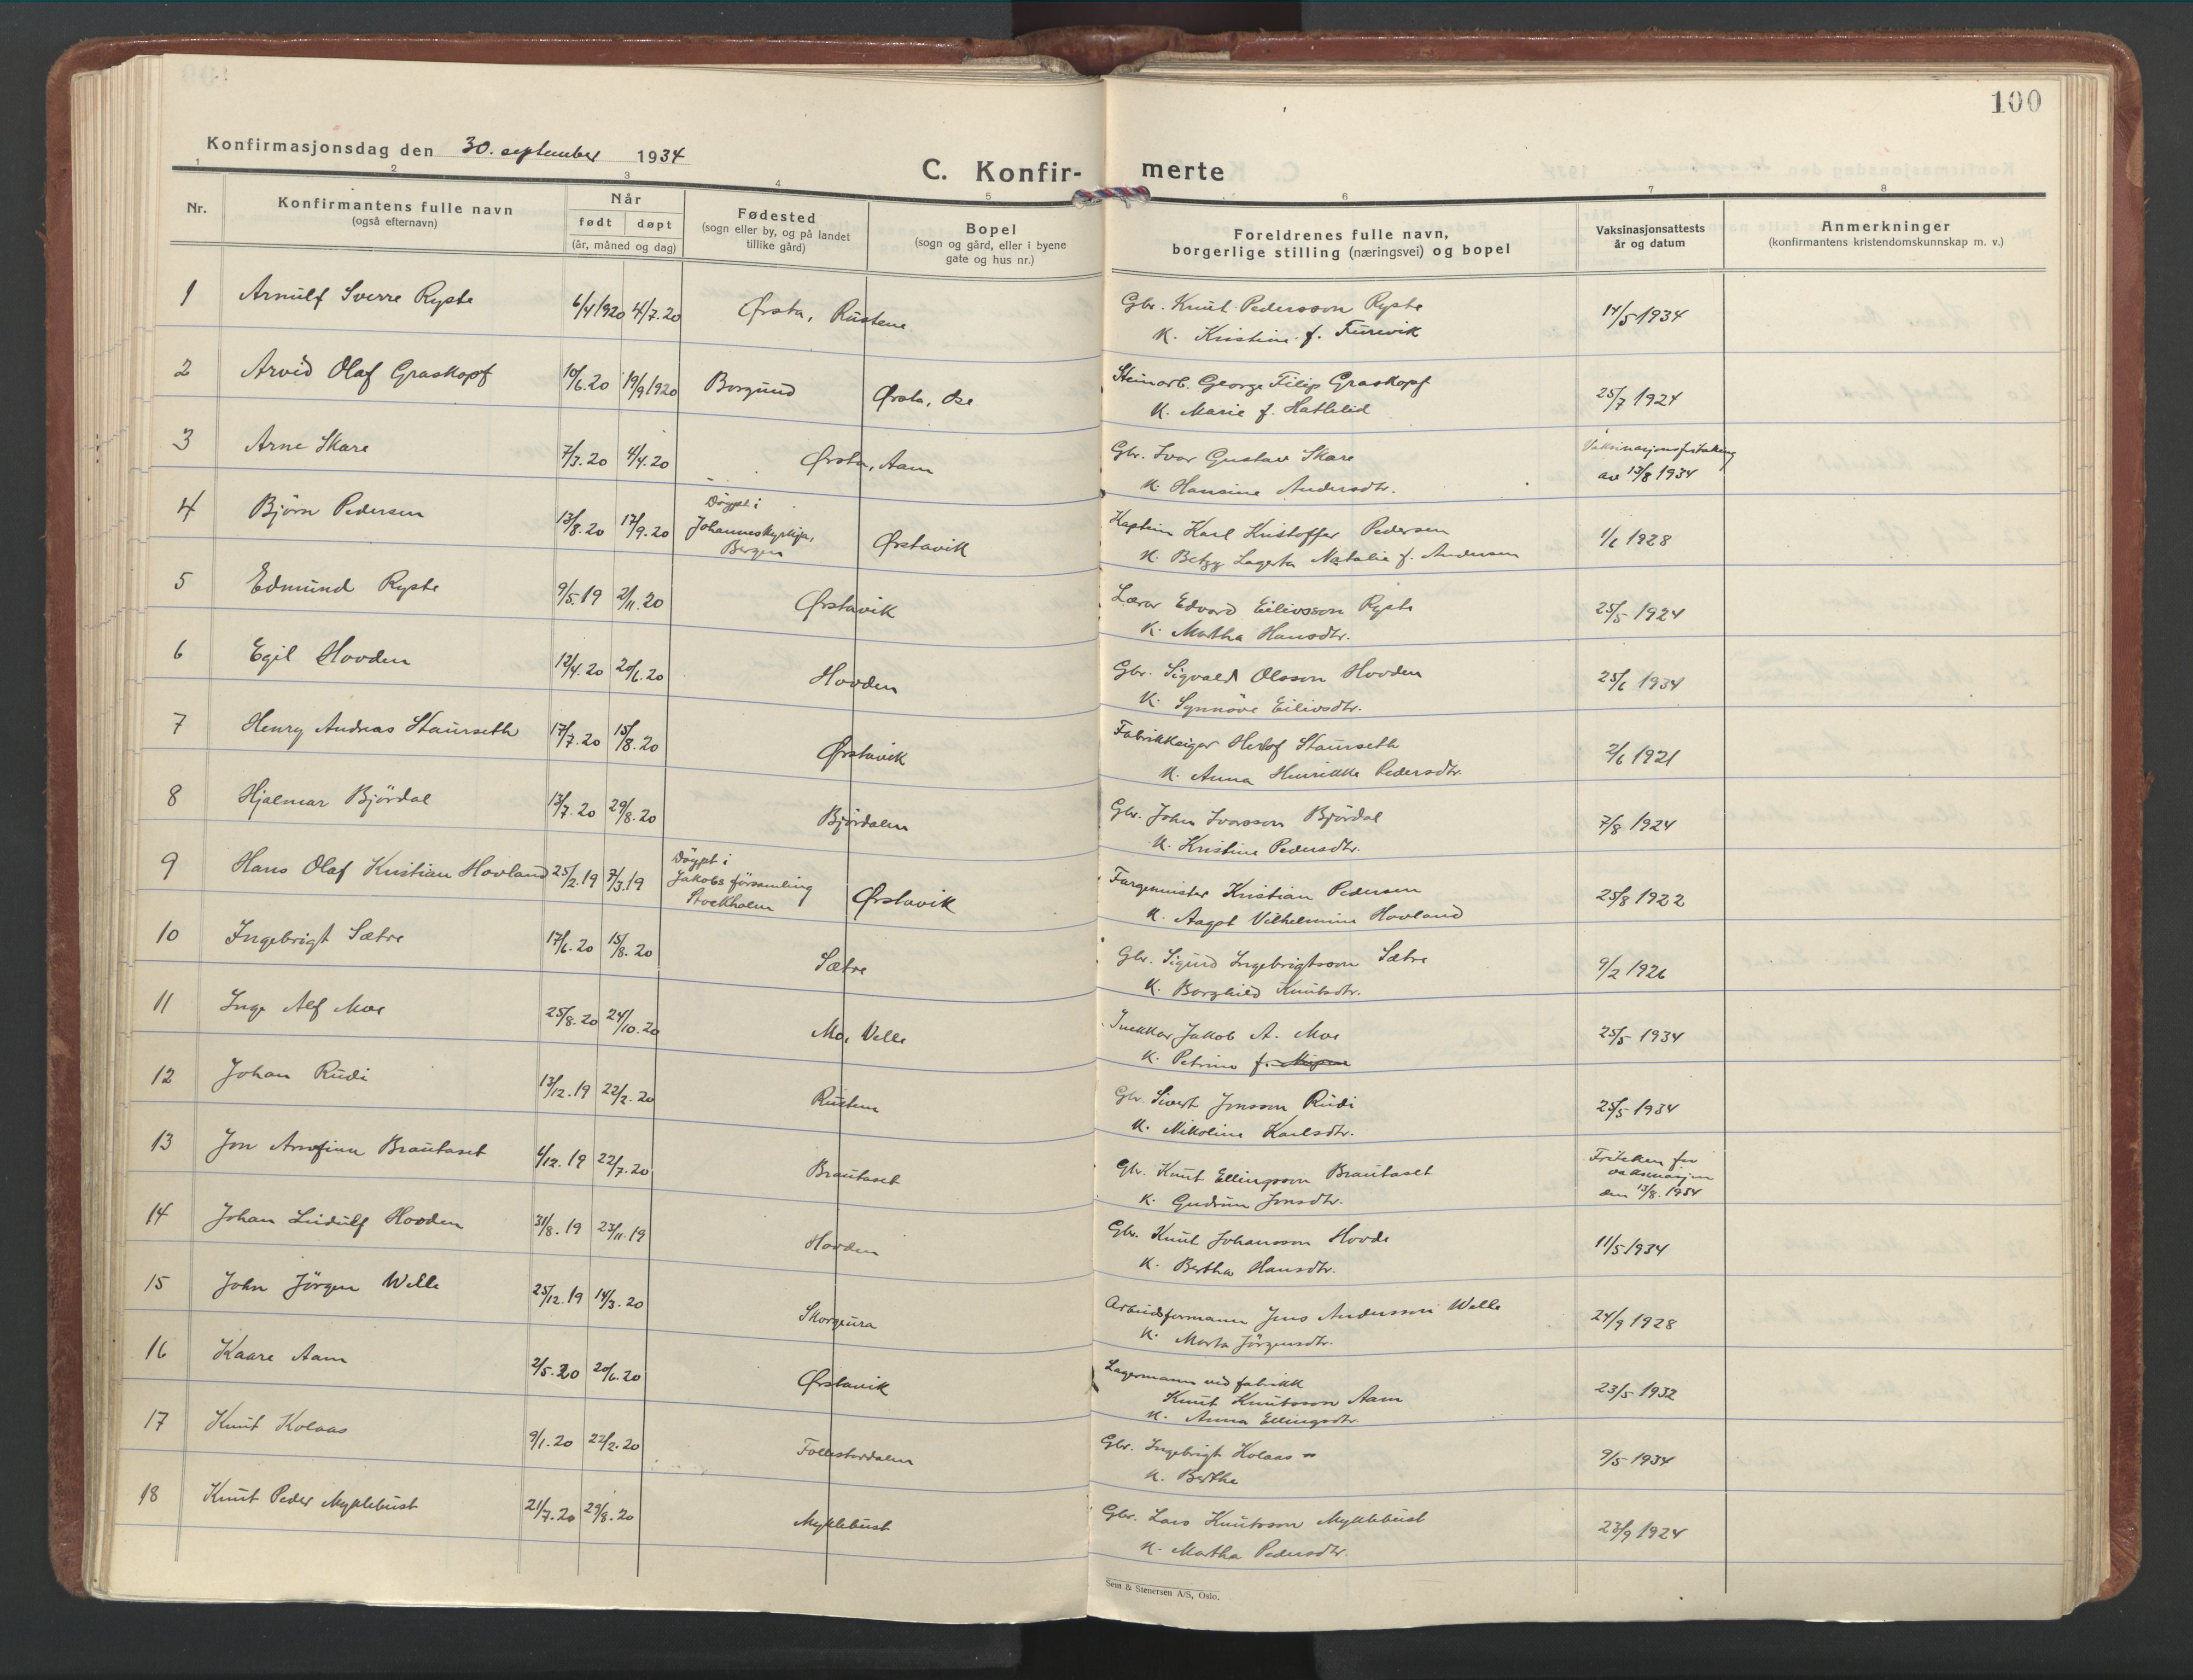 100
Konfirmasjonsdag den 30. september 1934
C. Konfir- merte
1 2 3 4 5 6 7 8
Nr.
Konfirmantens fulle navn
(også efternavn)
Når
født døpt
(år, måned og dag)
Fødested
(sogn eller by, og på landet
tillike gård)
Bopel
(sogn og gård, eller i byene
gate og hus nr.)
Foreldrenes fulle navn,
borgerlige stilling (næringsvei) og bopel
Vaksinasjonsattests
år og datum
Anmerkninger
(konfirmantens kristendomskunnskap m. v.)
1 Arnulf Sverre Ryste 6/4 1920 4/7.20 Ørsta, Rustene Gbr. Knut Pedersson Ryste 14/5 1934
K. Kristine f. Furevik
2 Arvid Olaf Graskopf 10/6.20 19/9 1920 Borgund Ørsta, Ose Steinarb. George Filip Graskopf 25/7 1924
K. Marie f. Hatlelid
3 Arne Skare 7/3.20 4/4.20 Ørsta, Aam Gbr. Ivar Gustav Skare Vaksinasjonsfritaking
K. Hansine Andersdtr. av 13/8 1934
4 Björn Pedersen 13/8.20 17/9.20 Döypt i
Johanneskyrkja,
Bergen Ørstavik Kaptein Karl Kristoffer Pedersen 1/6 1928
K. Betzy Lagerta Natalie f. Andersen
5 Edmund Ryste 9/5.19 2/11.20 Ørstavik Lærar Edvard Eilivsson Ryste 25/5 1924
K. Martha Hansdtr.
6 Egil Hovden 12/4.20 20/6.20 Hovden Gbr. Sigvald Olsson Hovden 25/6 1934
K. Synnöve Eilivsdtr.
7 Henry Andreas Staurseth 17/7.20 15/8.20 Ørstavik Fabrikkeigar Herlof Staurseth 2/6 1921
K. Anna Henrikke Pedersdtr.
8 Hjalmar Björdal 13/7.20 29/8.20 Björdalen Gbr. John Ivarsson Björdal 7/8 1924
K. Kristine Pedersdtr.
9 Hans Olaf Kristian Hovland 25/2.19 7/3.19 Döypt i
Jakobs församling
Stockholm Ørstavik Fargemeister Kristian Pedersen 25/8 1922
K. Aagot Vilhelmine Hovland
10 Ingebrigt Sætre 17/6.20 15/8.20 Sætre Gbr. Sigurd Ingebrigtsson Sætre 9/2 1926
K. Borghild Knutsdtr.
11 Inge Alf Moe 25/8.20 24/10.20 Mo, Velle Snekkar Jakob A. Moe 25/5 1934
K. Petrine f.
12 Johan Rudi 13/12.19 22/2.20 Rusten Gbr. Sivert Jonsson Rudi 25/5 1934
K. Nikoline Karlsdtr.
13 Jon Arnfinn Brautaset 4/12.19 22/7.20 Brautaset Gbr. Knut Ellingsson Brautaset Friteken for
vaksinasjon
K. Gudrun Jonsdtr. den 13/8.1934
14 Johan Lidulf Hovden 31/8.19 23/11.19 Hovden Gbr. Knut Johansson Hovde 11/5 1934
K. Bertha Hansdtr.
15 John Jörgen Welle 25/12.19 14/3.20 Skorgeura Arbeidsformann Jens Andersson Welle 24/9 1928
K. Marta Jörgensdtr.
16 Kaare Aam 2/5.20 20/6.20 Ørstavik Lagermann ved fabrikk 23/5 1932
Knut Knutsson Aam
K. Anna Ellingsdtr.
17 Knut Kolaas 9/1.20 22/2.20 Follestaddalen Gbr. Ingebrigt Kolaas 9/5 1934
K. Berthe
18 Knut Peder Myklebust 21/7.20 29/8.20 Myklebust Gbr. Lars Knutsson Myklebust 23/9 1924
K. Martha Pedersdtr.
Sem & Stenersen A/S, Oslo.